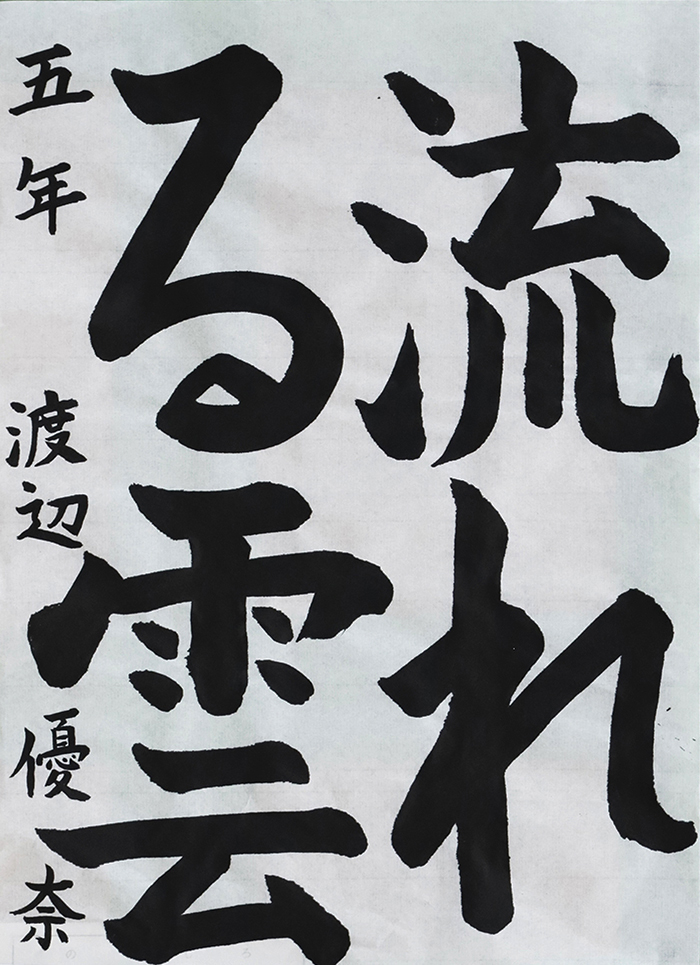 流れ
る雲
五年 渡辺優奈